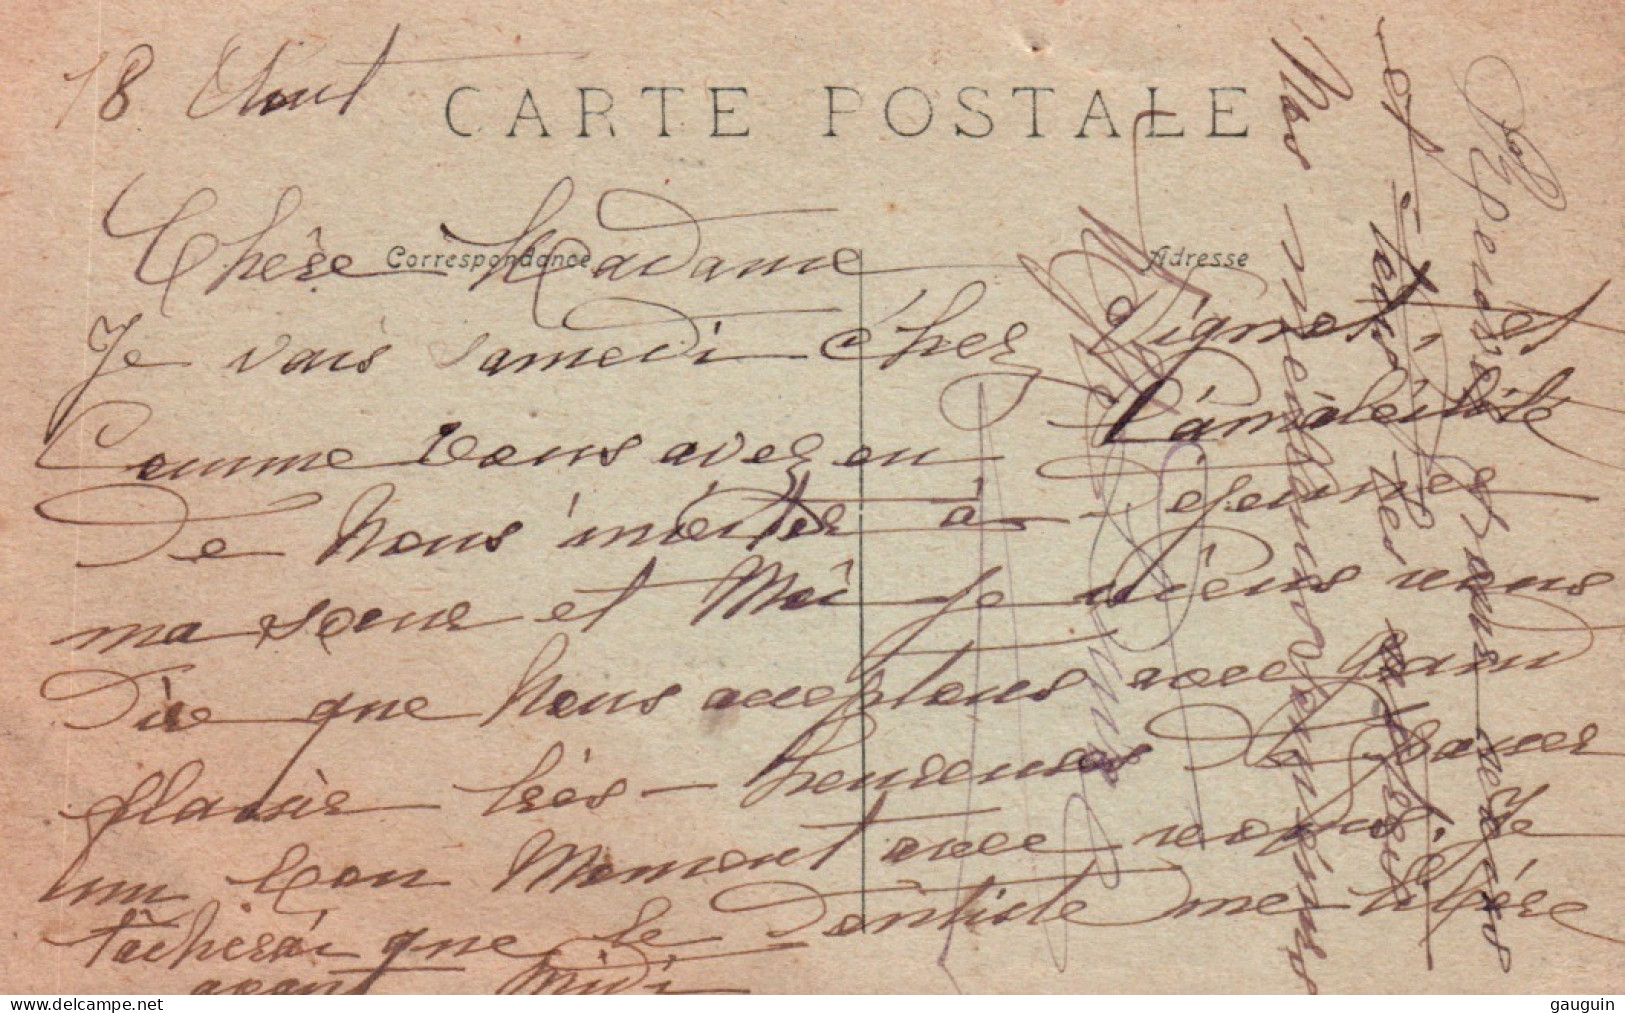 18 Aout
CARTE POSTALE
Correspondance
Adresse
Chère Madame
Je vais samedi chez Vignet, et
Comme vous avez eu l'amabilité
de nous inviter à déjeuner
ma soeur et Moi je viens vous
dire que nous acceptons avec grand
plaisir très-heureuses de passer
un bon Moment avec vous. Je
tâcherai que le dentiste me libère
avant Midi
Nos meilleurs souvenirs
et à tous les